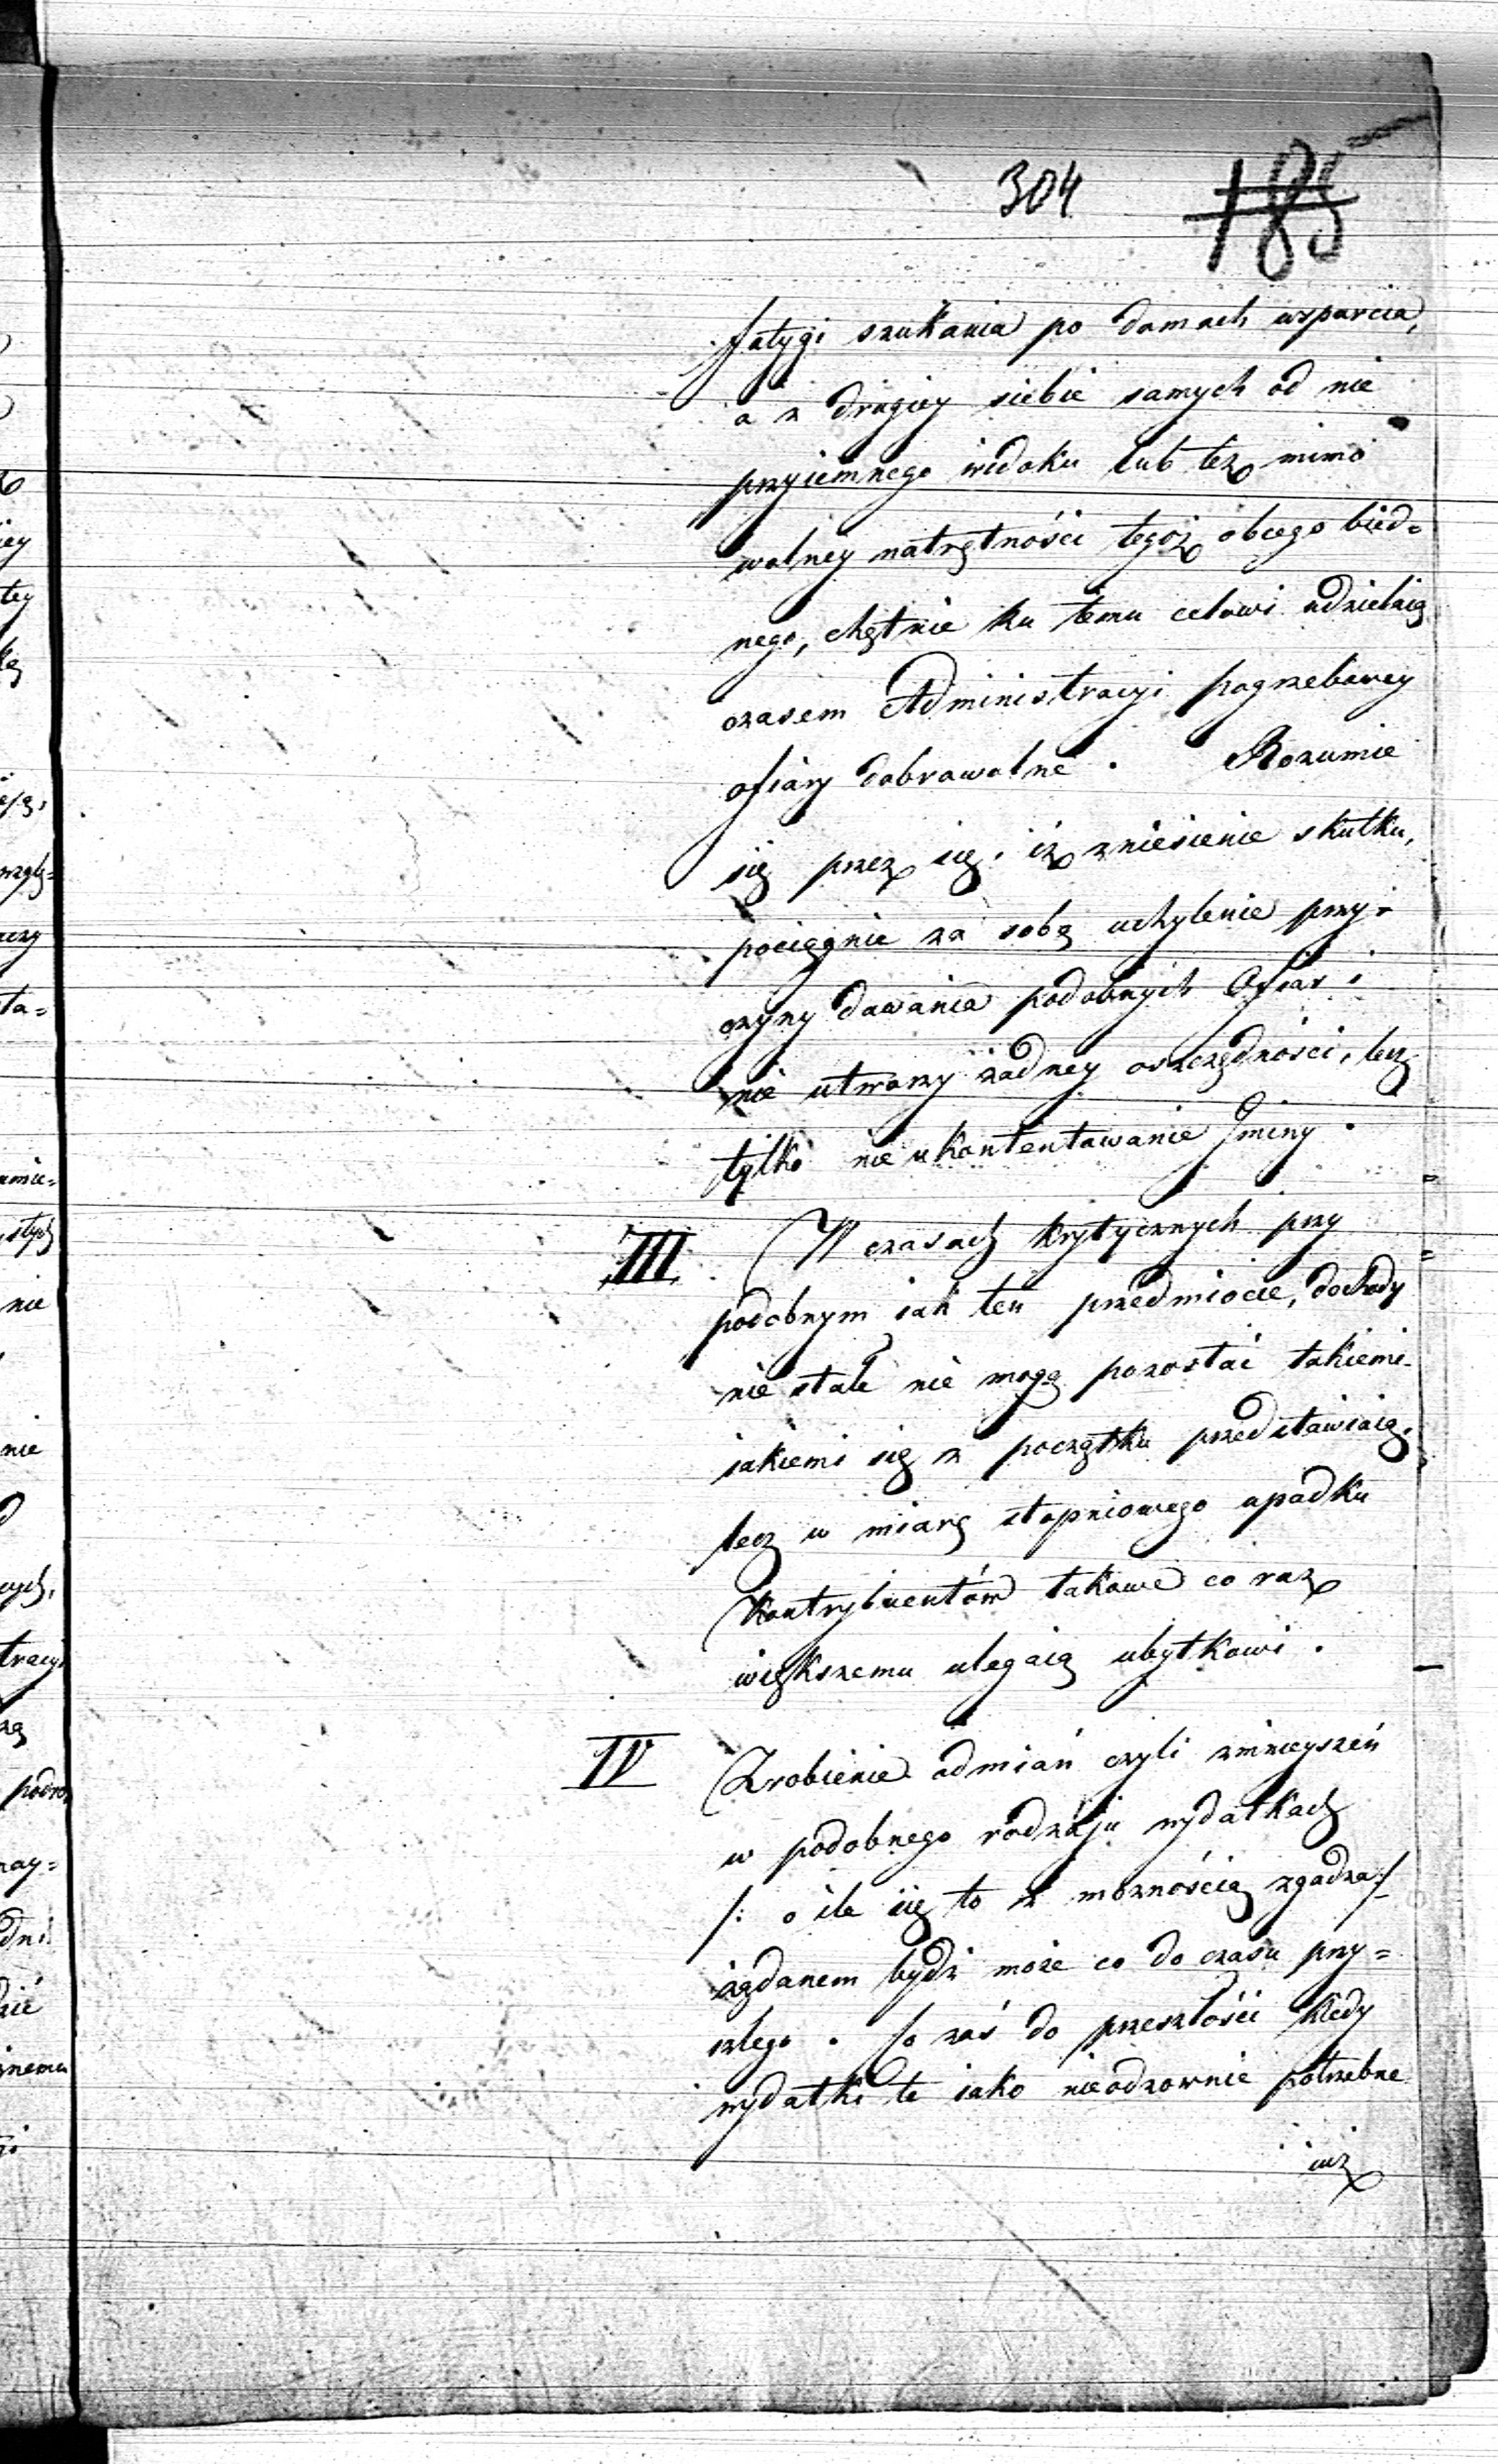 304 185
fatygi szukania po domach wsparcia,
a z drugiey siebie samych od nie
przyiemnego widoku lub też mimo
wolney natrętności tegoż obcego bied=
nego, chętnie ku temu celowi udzielaią
czasem Administracyi pogrzebowey
ofiary dobrowolne. Rozumie
się przez się, iż zniesienie skutku,
pociągnie za sobą uchylenie przy=
czyny dawania podobnych Ofiar i
nie utworzy żadney oszczędności, lecz
tylko nie ukontentowanie Gminy.
III. W czasach krytycznych przy
podobnym iak ten przedmiocie, dochody
nie stałe nie mogą pozostać takiemi
iakiemi się z początku przedstawiaią,
lecz w miarę stopniowego upadku
Kontrybuentów takowe co raz
większemu ulegaią ubytkowi.
IV Zrobienie odmian czyli zmnieyszeń
w podobnego rodzaju wydatkach
/: o ile się to z możnością zgadza :/
żądanem bydź może co do czasu przy=
szłego. Co zaś do przeszłości kiedy
wydatki te iako nieodzownie potrzebne
iuż
ley
tey
ką
wzglę=
ta=
umie=
stych
nie
nie
tracyi
nay=
dni
nemu